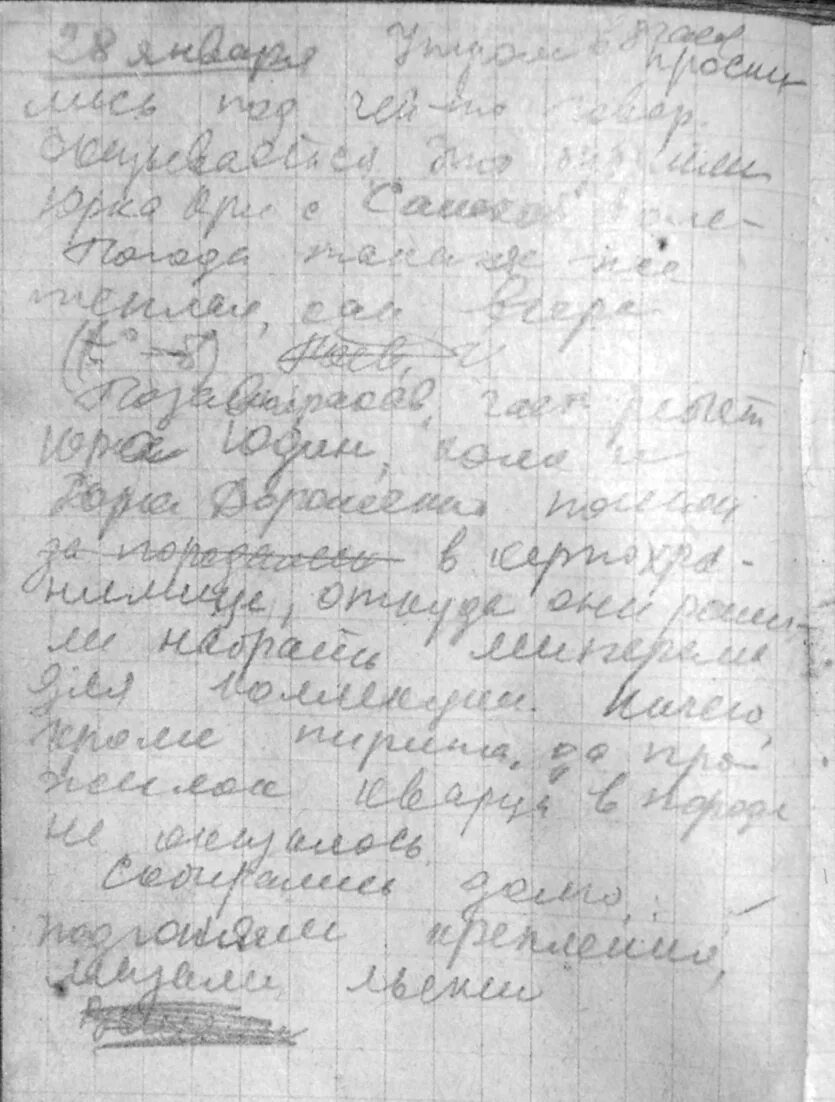 28 января Утром в 8 часов
просну-
лись под чей-то говор.
Оказывается это
Юрка Кри с Сашкой
Погода такая же
теплая, как вчера
(t° -8°)
Позавтракав, часть ребят
Юрка Юдин, Коля и
Юрка Дорошенко пошли
за породами в кернохра-
нилище, откуда они реши-
ли набрать минералов
для коллекции. Ничего,
кроме пирита, да про-
жилок кварца в породе
не оказалось.
Собирались долго:
подгоняли крепления,
мазали лыжи